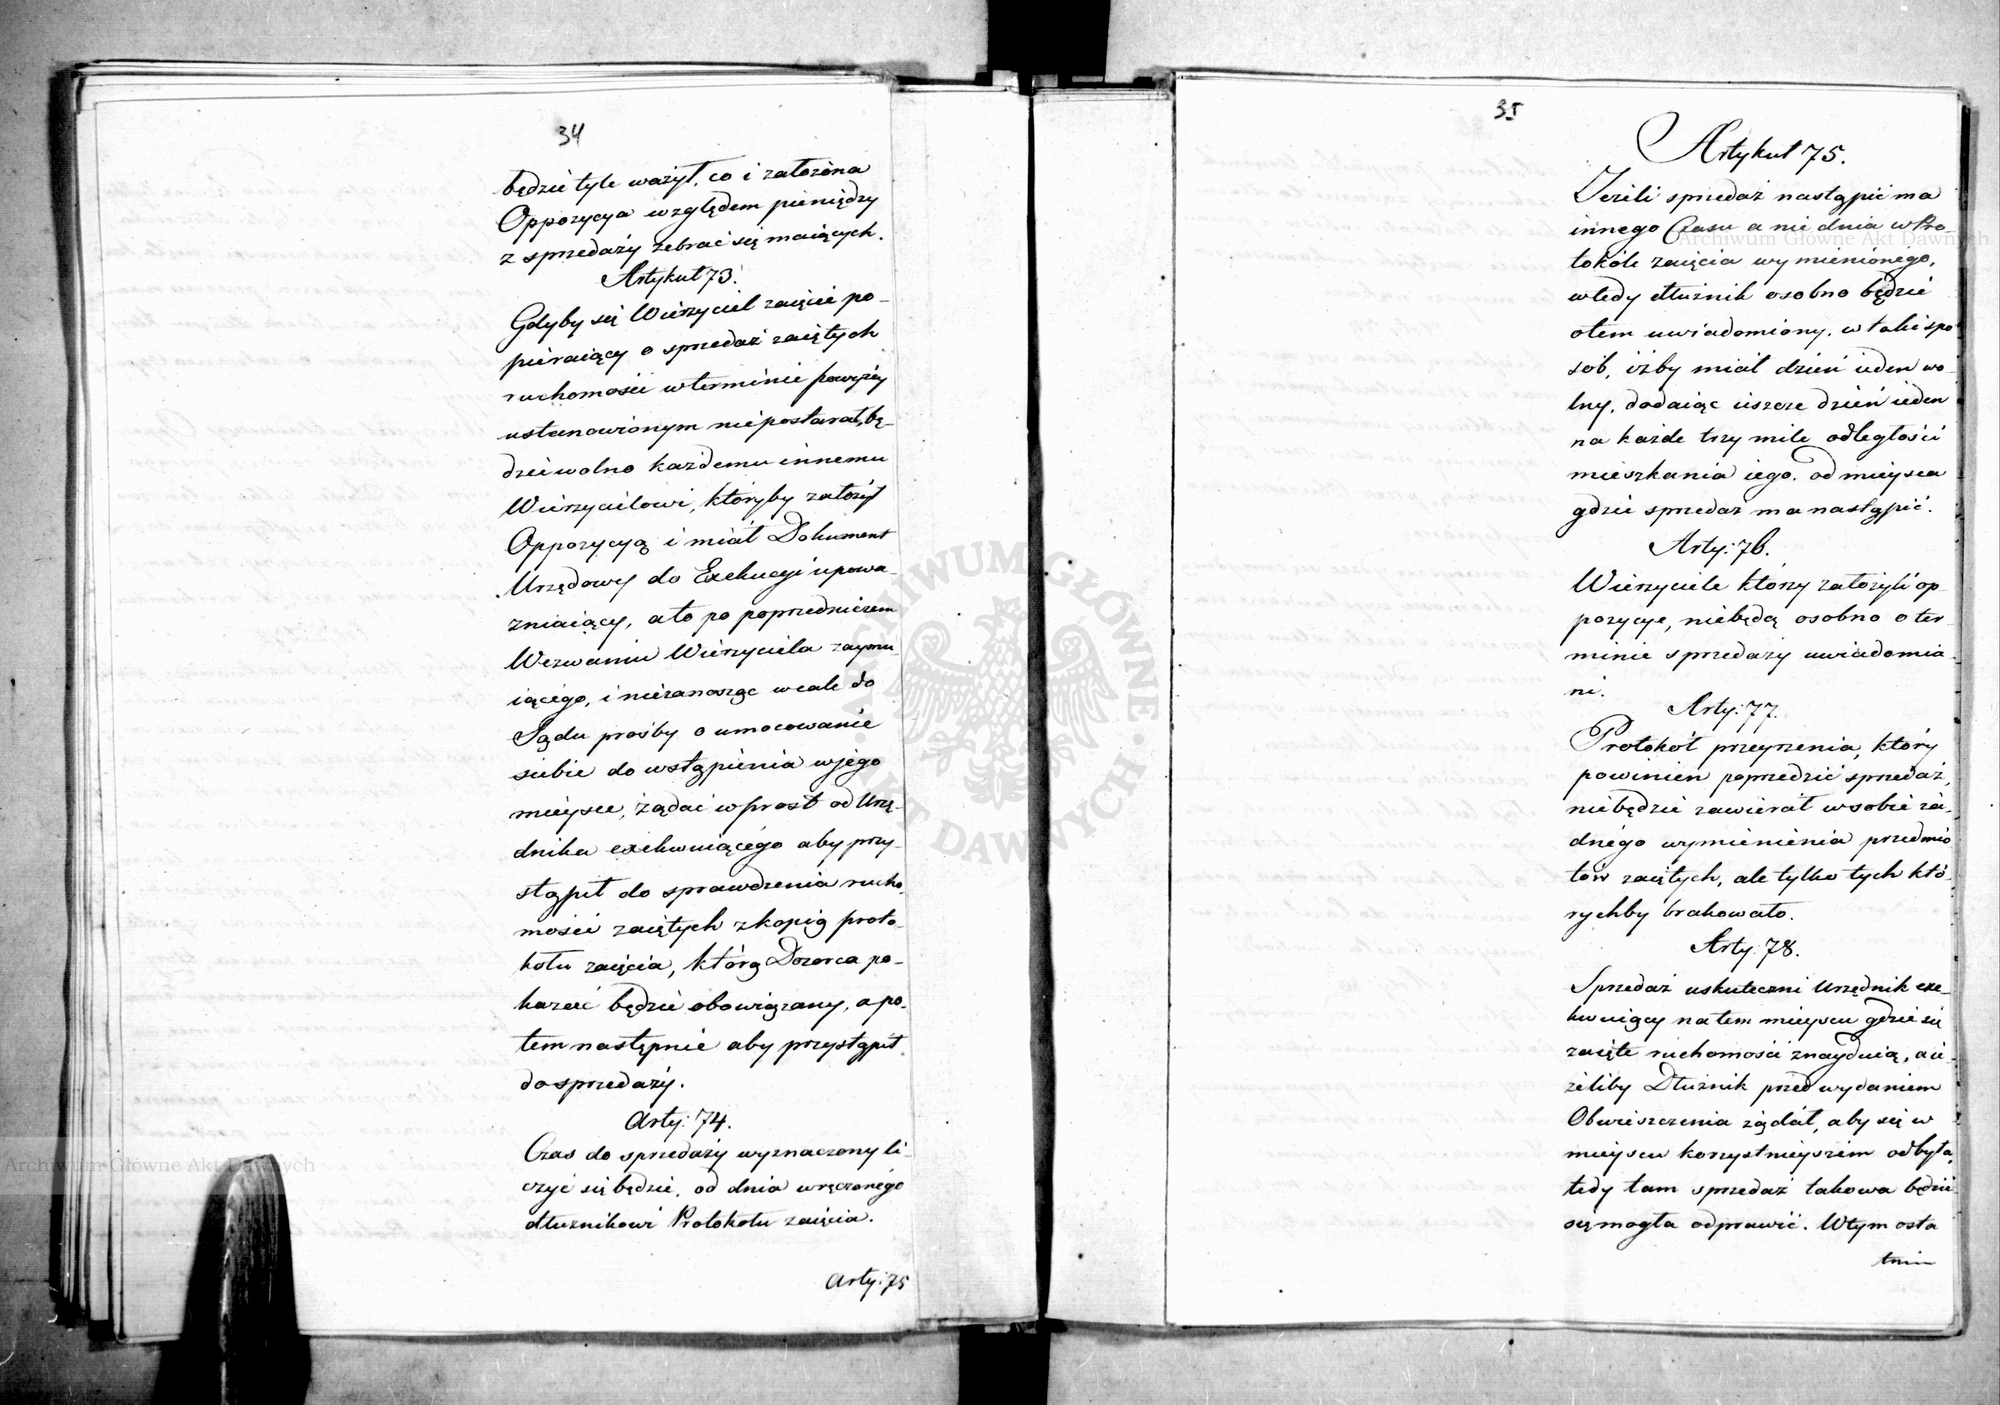 34
będzie tyle ważył, co i założona
Oppozycya względem pieniędzy
z sprzedaży zebrać się maiących.
Artykuł 73.
Gdyby się Wierzyciel zaięcie po-
pieraiący o sprzedaż zaiętych
ruchomości w terminie powyżey
ustanowionym niepostarał, bę-
dzie wolno każdemu innemu
Wierzycielowi, któryby założył
Oppozycyą i miał Dokument
Urzędowy do Exekucyi upowa-
żniaiący, a to po poprzedniczem
Wezwaniu Wierzyciela zaymu-
iącego, i niezanosząc wcale do
Sądu prośby o umocowanie
siebie do wstąpienia w jego
mieysce, żądać wprost od Urzę-
dnika exekwuiącego aby przy-
stąpił do sprawdzenia rucho-
mości zaiętych z kopią proto-
kołu zaięcia, którą Dozorca po-
kazać będzie obowiązany, a po-
tem następnie aby przystąpił
do sprzedaży.
Arty: 74.
Czas do sprzedaży wyznaczony li-
czyć się będzie, od dnia wręczonego
dłużnikowi Protokołu zaięcia.
Arty: 75
35
Artykuł 75.
Jeżeli sprzedaż nastąpić ma
innego Czasu a nie dnia w Pro-
tokóle zaięcia wymienionego,
wtedy dłużnik osobno będzie
o tem uwiadomiony, w taki spo-
sób, iżby miał dzień ieden wo-
lny, dodaiąc ieszcze dzień ieden
na każde trzy mile odległości
mieszkania iego, od mieysca
gdzie sprzedaż ma nastąpić.
Arty: 76.
Wierzyciele którzy założyli op-
pozycye, niebędą osobno o ter-
minie sprzedaży uwiadomia-
ni.
Arty: 77.
Protokół przeyrzenia, który
powinien poprzedzić sprzedaż,
niebędzie zawierał w sobie ża-
dnego wymienienia przedmio-
tów zaiętych, ale tylko tych któ-
rychby brakowało.
Arty: 78.
Sprzedaż uskuteczni Urzędnik exe-
kwuiący na tem mieyscu gdzie się
zaięte ruchomości znayduią, a ie-
żeliby Dłużnik przed wydaniem
Obwieszczenia żądał, aby się w
mieyscu korzystnieyszem odbyła,
tedy tam sprzedaż takowa będzie
się mogła odprawić. W tym osta
tnim
Archiwum Główne Akt Dawnych
Archiwum Główne Akt Dawnych
ARCHIWUM GŁÓWNE AKT DAWNYCH